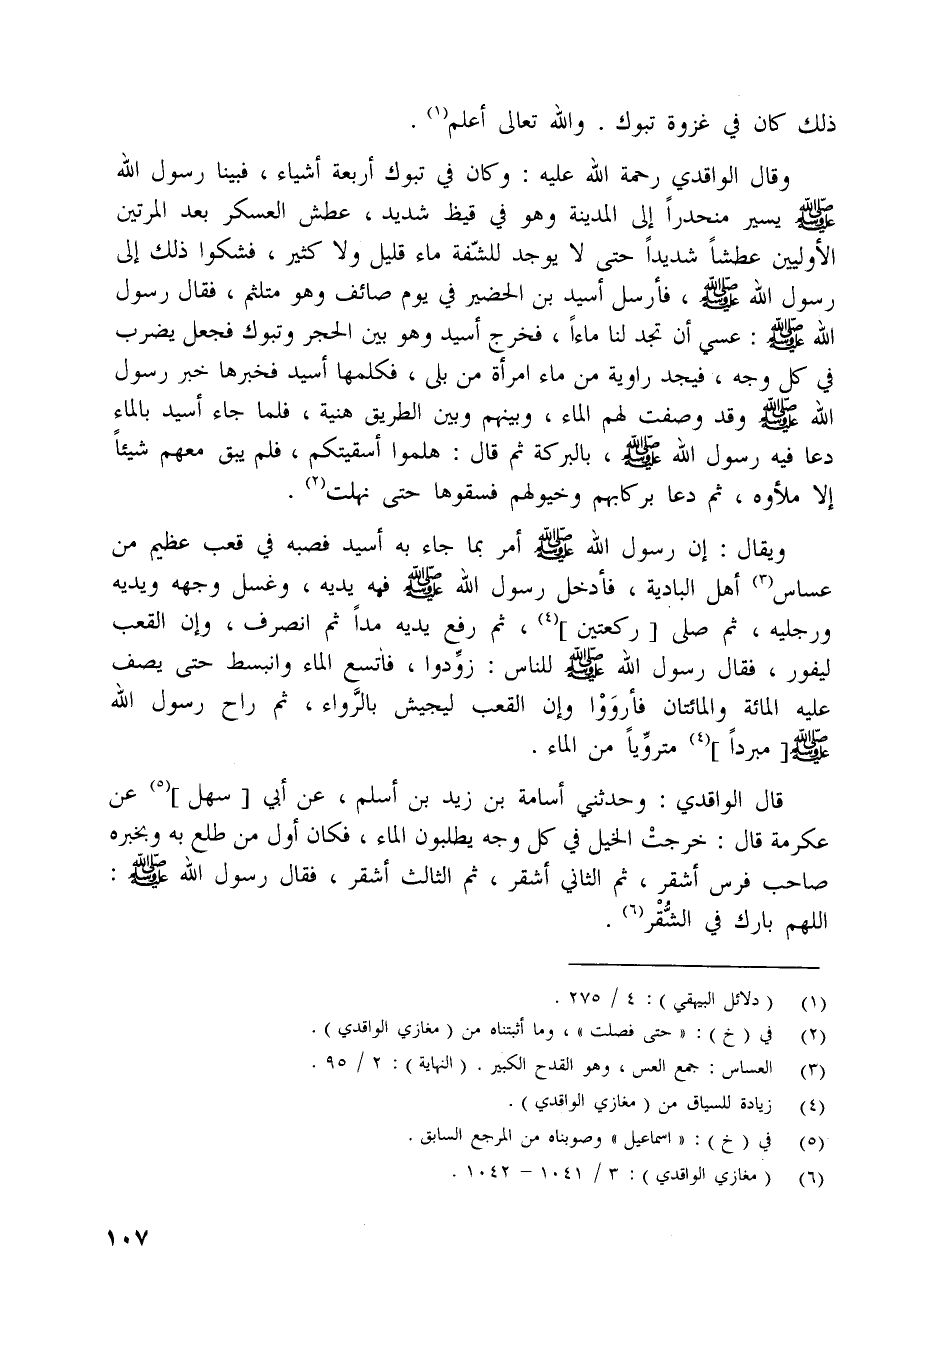 ذلك كان في غزوة تبوك . والله تعالى أعلم(١) .
وقال الواقدي رحمة الله عليه : وكان في تبوك أربعة أشياء ، فبينا رسول الله
ﷺ يسير منحدراً إلى المدينة وهو في قيظ شديد ، عطش العسكر بعد المرتين
الأوليين عطشاً شديداً حتى لا يوجد للشّفة ماء قليل ولا كثير ، فشكوا ذلك إلى
رسول الله ﷺ ، فأرسل أسيد بن الحضير في يوم صائف وهو متلثم ، فقال رسول
الله ﷺ : عسي أن تجد لنا ماءاً ، فخرج أسيد وهو بين الحجر وتبوك فجعل يضرب
في كل وجه ، فيجد راوية من ماء امرأة من بلى ، فكلمها أسيد فخبرها خبر رسول
الله ﷺ وقد وصفت لهم الماء ، وبينهم وبين الطريق هنية ، فلما جاء أسيد بالماء
دعا فيه رسول الله ﷺ ، بالبركة ثم قال : هلموا أسقيتكم ، فلم يبق معهم شيئاً
إلا ملأوه ، ثم دعا بركابهم وخيولهم فسقوها حتى نهلت(٢) .
ويقال : إن رسول الله ﷺ أمر بما جاء به أسيد فصبه في قعب عظيم من
عساس(٣) أهل البادية ، فأدخل رسول الله ﷺ فيه يديه ، وغسل وجهه ويديه
ورجليه ، ثم صلى [ ركعتين ](٤) ، ثم رفع يديه مداً ثم انصرف ، وإن القعب
ليفور ، فقال رسول الله ﷺ للناس : زوِّدوا ، فاتسع الماء وانبسط حتى يصف
عليه المائة والمائتان فأروَوْا وإن القعب ليجيش بالرَّواء ، ثم راح رسول الله
ﷺ[ مبرداً ](٤) متروِّياً من الماء .
قال الواقدي : وحدثني أسامة بن زيد بن أسلم ، عن أبي [ سهل ](٥) عن
عكرمة قال : خرجتْ الخيل في كل وجه يطلبون الماء ، فكان أول من طلع به وبخبره
صاحب فرس أشقر ، ثم الثاني أشقر ، ثم الثالث أشقر ، فقال رسول الله ﷺ :
اللهم بارك في الشُّقْر(٦) .
(١) ( دلائل البيهقي ) : ٤ / ٢٧٥ .
(٢) في ( خ ) : « حتى فصلت » ، وما أثبتناه من ( مغازي الواقدي ) .
(٣) العساس : جمع العس ، وهو القدح الكبير . ( النهاية ) : ٢ / ٩٥ .
(٤) زيادة للسياق من ( مغازي الواقدي ) .
(٥) في ( خ ) : « اسماعيل » وصوبناه من المرجع السابق .
(٦) ( مغازي الواقدي ) : ٣ / ١٠٤١ – ١٠٤٢ .
١٠٧